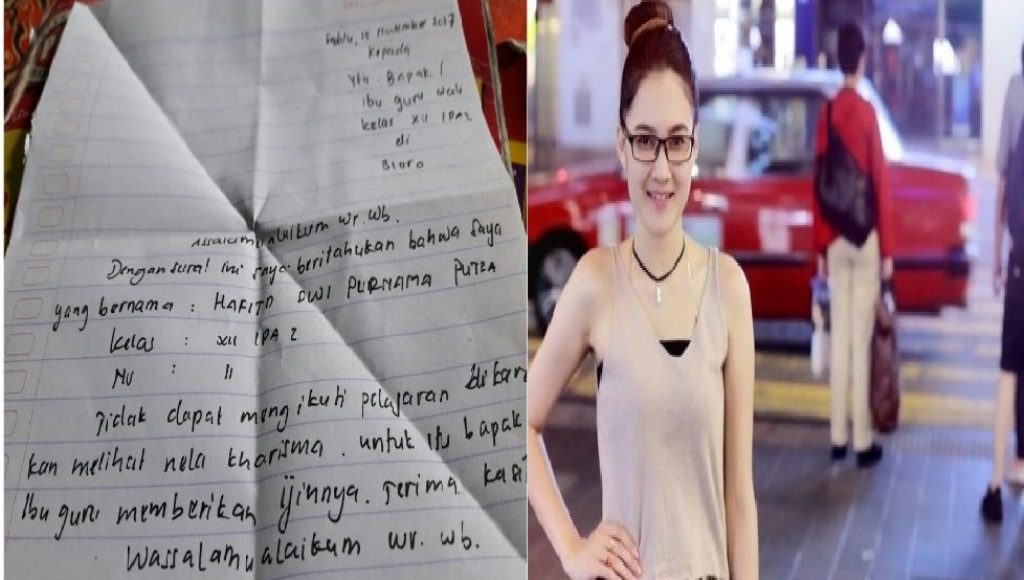 Sabtu, 18 November 2017
Kepada
Yth. Bapak /
ibu guru wali
kelas XII IPA2
di
Bloro
Assalamualaikum wr. wb.
Dengan surat ini saya beritahukan bahwa saya
yang bernama : HAFITD DWI PURNAMA PUTRA
kelas : XII IPA 2
No : 11
Tidak dapat mengikuti pelajaran dikare
kan melihat nela kharisma. untuk itu bapak
ibu guru memberikan ijinnya. Terima kasi
Wassalamualaikum wr. wb.